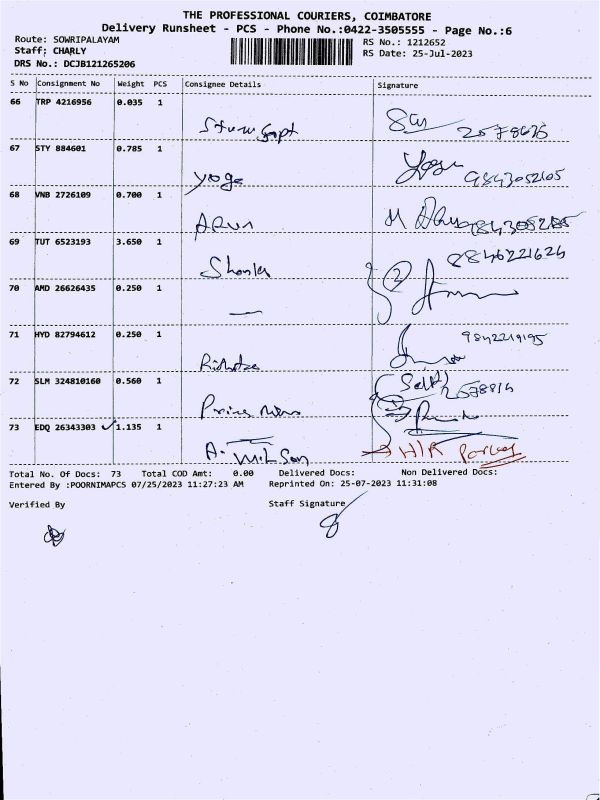 THE PROFESSIONAL COURIERS, COIMBATORE
Delivery Runsheet - PCS - Phone No.:0422-3505555 - Page No.:6
Route: SOWRIPALAYAM RS No.: 1212652
Staff: CHARLY RS Date: 25-Jul-2023
DRS No.: DCJB121265206
S No Consignment No Weight PCS Consignee Details Signature
66 TRP 4216956 0.035 1
67 STY 884601 0.785 1 yoge 9843052105
68 VNB 2726109 0.700 1 Arun
69 TUT 6523193 3.650 1
70 AMD 26626435 0.250 1 — 2
71 HYD 82794612 0.250 1
72 SLM 324810160 0.560 1
73 EDQ 26343303 ✓ 1.135 1 H/R
Total No. Of Docs: 73 Total COD Amt: 0.00 Delivered Docs: Non Delivered Docs:
Entered By :POORNIMAPCS 07/25/2023 11:27:23 AM Reprinted On: 25-07-2023 11:31:08
Verified By Staff Signature